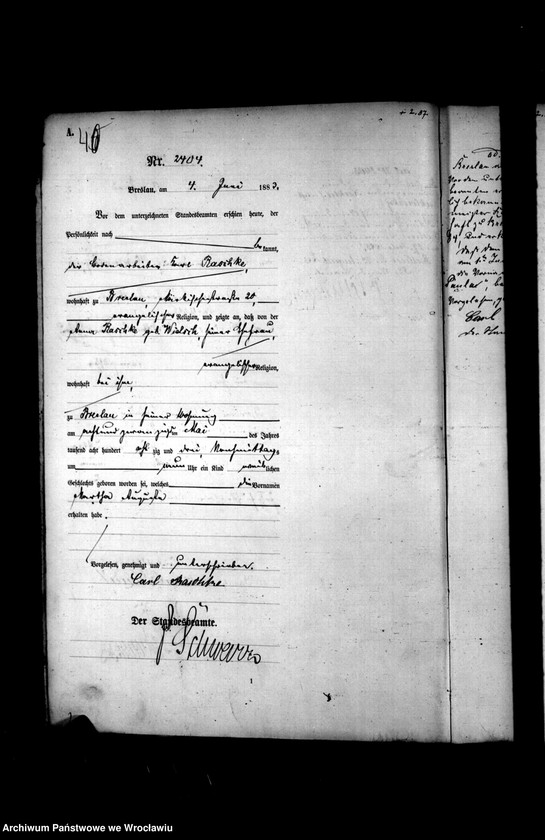 + 2. 87.
A.
40
Nr. 2404.
Breslau, am 4. Juni 1883.
Vor dem unterzeichneten Standesbeamten erschien heute, der
Persönlichkeit nach
be kannt,
der Bodenarbeiter Carl Raschke,
wohnhaft zu Breslau, Märkischestraße 20,
evangelischer Religion, und zeigte an, daß von der
Anna Raschke geb. seiner Ehefrau,
evangelischer Religion,
wohnhaft bei ihm,
zu Breslau in seiner Wohnung
am achtundzwanzigsten Mai des Jahres
tausend acht hundert achtzig und drei, Nachmittags
um neun Uhr ein Kind weiblichen
Geschlechts geboren worden sei, welches die Vornamen
Martha Auguste
erhalten habe.
Vorgelesen, genehmigt und unterschrieben.
Carl Raschke
Der Standesbeamte.
1
Breslau
Vor dem
daß dem
die Vorna
Vorgelesen, g
Carl
Archiwum Państwowe we Wrocławiu